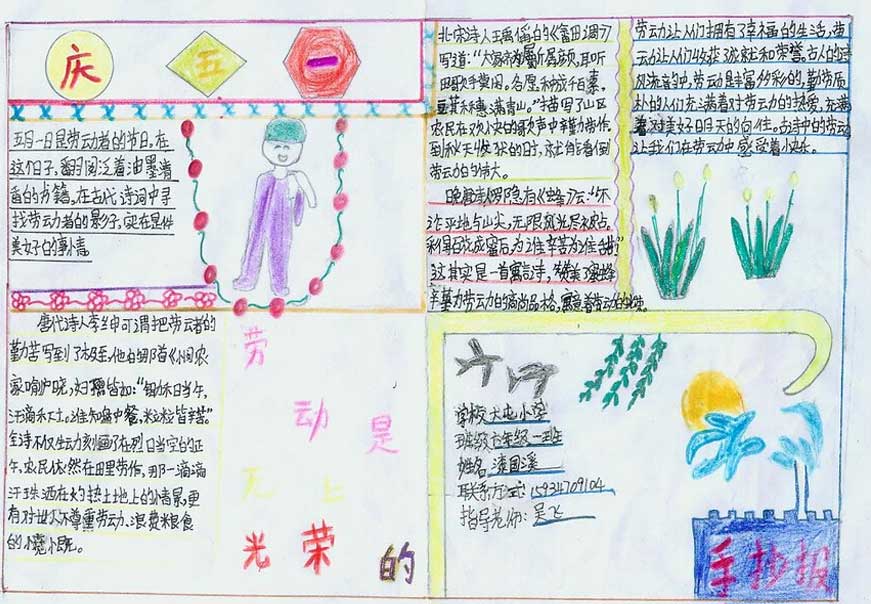 庆
五
一
五月一日是劳动者的节日。在
这个日子,翻阅泛着油墨清
香的书籍,在古代诗词中寻
找劳动者的影子,实在是件
美好的事情。
唐代诗人李绅可谓把劳动者的
勤苦写到了极至,他的那首《悯农》
家喻户晓,妇孺皆知:“锄禾日当午,
汗滴禾下土。谁知盘中餐,粒粒皆辛苦。”
全诗不仅生动刻画了在烈日当空的正
午,农民依然在田里劳作,那一滴滴
汗珠洒在灼热土地上的情景,更
有对世人不尊重劳动、浪费粮食
的愤恨。
劳
动
是
无
上
光
荣
的
北宋诗人王禹偁的《畲田调》
写道:“大家齐力劚孱颜,耳听
田歌手莫闲。各愿种成千百索,
豆萁禾穗满青山。”描写了山区
农民在欢快的歌声中辛勤劳作,
到秋天收获的日时,就能看到
劳动的伟大。
晚唐诗人罗隐有《蜂》云:“不
论平地与山尖,无限风光尽被占。
采得百花成蜜后,为谁辛苦为谁甜”
这其实是一首寓言诗,赞美了蜜蜂
辛勤劳动的高尚品格,寓意着劳动的快乐。
劳动让人们拥有了幸福的生活,劳
动让人们收获了成就和荣誉。古人的诗
风流韵中,劳动是丰富多彩的,勤劳质
朴的人们充满着对劳动的热爱,充满
着对美好明天的向往。古诗中的劳动
让我们在劳动中感受着快乐。
学校 大屯小学
班级 六年级一班
姓名
联系方式: 15934709104
指导老师: 吴飞
手抄报